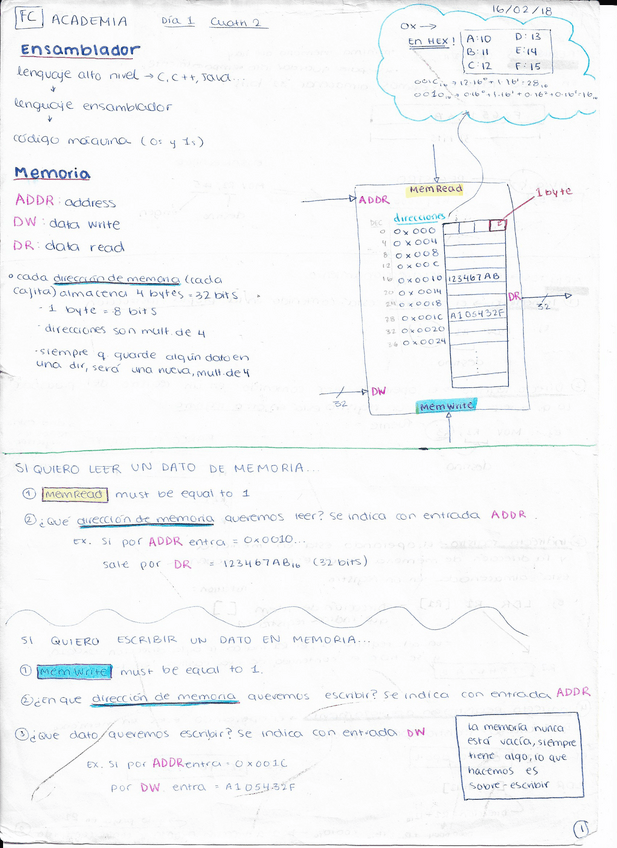 FC ACADEMIA Día 1 Cuatri 2
16/02/18
Ensamblador
lenguaje alto nivel → C, C++, Java...
↓
lenguaje ensamblador
↓
código máquina (0s y 1s)
0x →
En HEX!
A:10 D:13
B:11 E:14
C:12 F:15
Memoria
ADDR: address
DW: data write
DR: data read
• cada dirección de memoria (cada
cajita) almacena 4 bytes = 32 bits
- 1 byte = 8 bits
· direcciones son mult. de 4
· siempre q. guarde algún dato en
una dir, será una nueva, mult. de 4
MemRead
ADDR
1 byte
DEC direcciones
0 0x000
4 0x004
8 0x008
12 0x00C
16 0x0010 123467AB
20 0x0014
24 0x0018
28 0x001C A105432F
32 0x0020
36 0x0024
DR
32
DW
32
MemWrite
SI QUIERO LEER UN DATO DE MEMORIA...
① MemRead must be equal to 1
② ¿Qué dirección de memoria queremos leer? Se indica con entrada ADDR.
Ex. Si por ADDR entra = 0x0010...
sale por DR = 123467AB₁₆ (32 bits)
SI QUIERO ESCRIBIR UN DATO EN MEMORIA...
① MemWrite must be equal to 1.
② ¿en que dirección de memoria queremos escribir? Se indica con entrada ADDR
③ ¿Que dato queremos escribir? Se indica con entrada DW
Ex. Si por ADDR entra = 0x001C
por DW entra = A105432F
la memoria nunca
está vacía, siempre
tiene algo, lo que
hacemos es
sobre-escribir
1